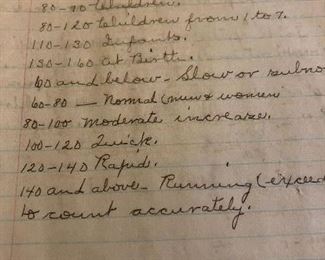 80-90 Children.
80-120 Children from 1 to 7.
110-130 Infants.
130-160 at Birth.
60 and below - Slow or subno
60-80 — Normal (men & women
80-100 Moderate increase.
100-120 Quick.
120-140 Rapid.
140 and above - Running (exceed
to count accurately.